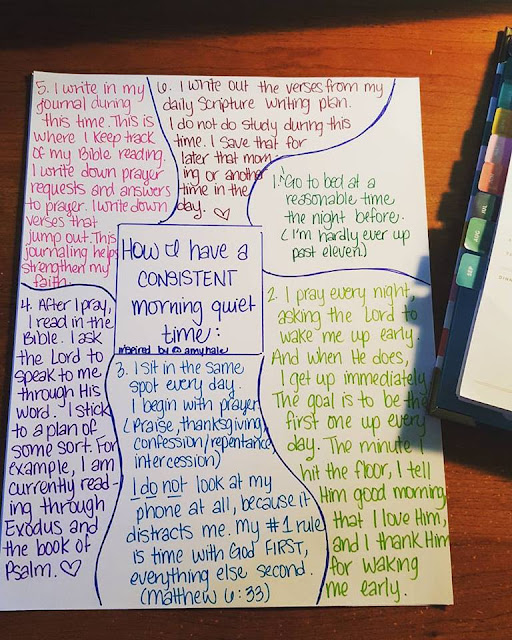 How I have a
CONSISTENT
morning quiet
time:
inspired by @amyhale
1. Go to bed at a
reasonable time
the night before.
(I'm hardly ever up
past eleven)
2. I pray every night,
asking the Lord to
wake me up early.
And when He does,
I get up immediately.
The goal is to be the
first one up every
day. The minute I
hit the floor, I tell
Him good morning,
that I love Him,
and I thank Him
for waking
me early.
3. I sit in the same
spot every day.
I begin with prayer
(Praise, thanksgiving,
confession/repentance,
intercession)
I do not look at my
phone at all, because it
distracts me. My #1 rule
is time with God FIRST,
everything else second.
(Matthew 6:33)
4. After I pray,
I read in the
Bible. I ask
the Lord to
speak to me
through His
word. I stick
to a plan of
some sort. For
example, I am
currently read-
ing through
Exodus and
the book of
Psalm. ♡
5. I write in my
journal during
this time. This is
where I keep track
of my Bible reading.
I write down prayer
requests and answers
to prayer. I write down
verses that
jump out. This
journaling helps
strengthen my
faith.
6. I write out the verses from my
daily Scripture writing plan.
I do not do study during this
time. I save that for
later that morn-
ing or another
time in the
day. ♡